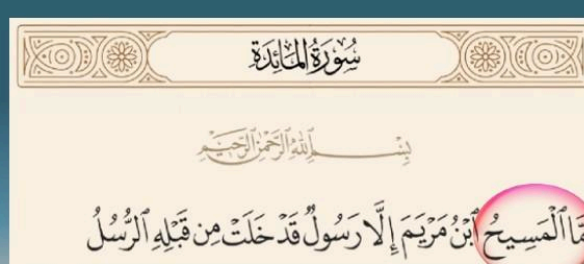 سُورَةُ المَائِدَةِ
بِسْمِ ٱللَّهِ ٱلرَّحْمَٰنِ ٱلرَّحِيمِ
مَّا ٱلْمَسِيحُ ٱبْنُ مَرْيَمَ إِلَّا رَسُولٌ قَدْ خَلَتْ مِن قَبْلِهِ ٱلرُّسُلُ